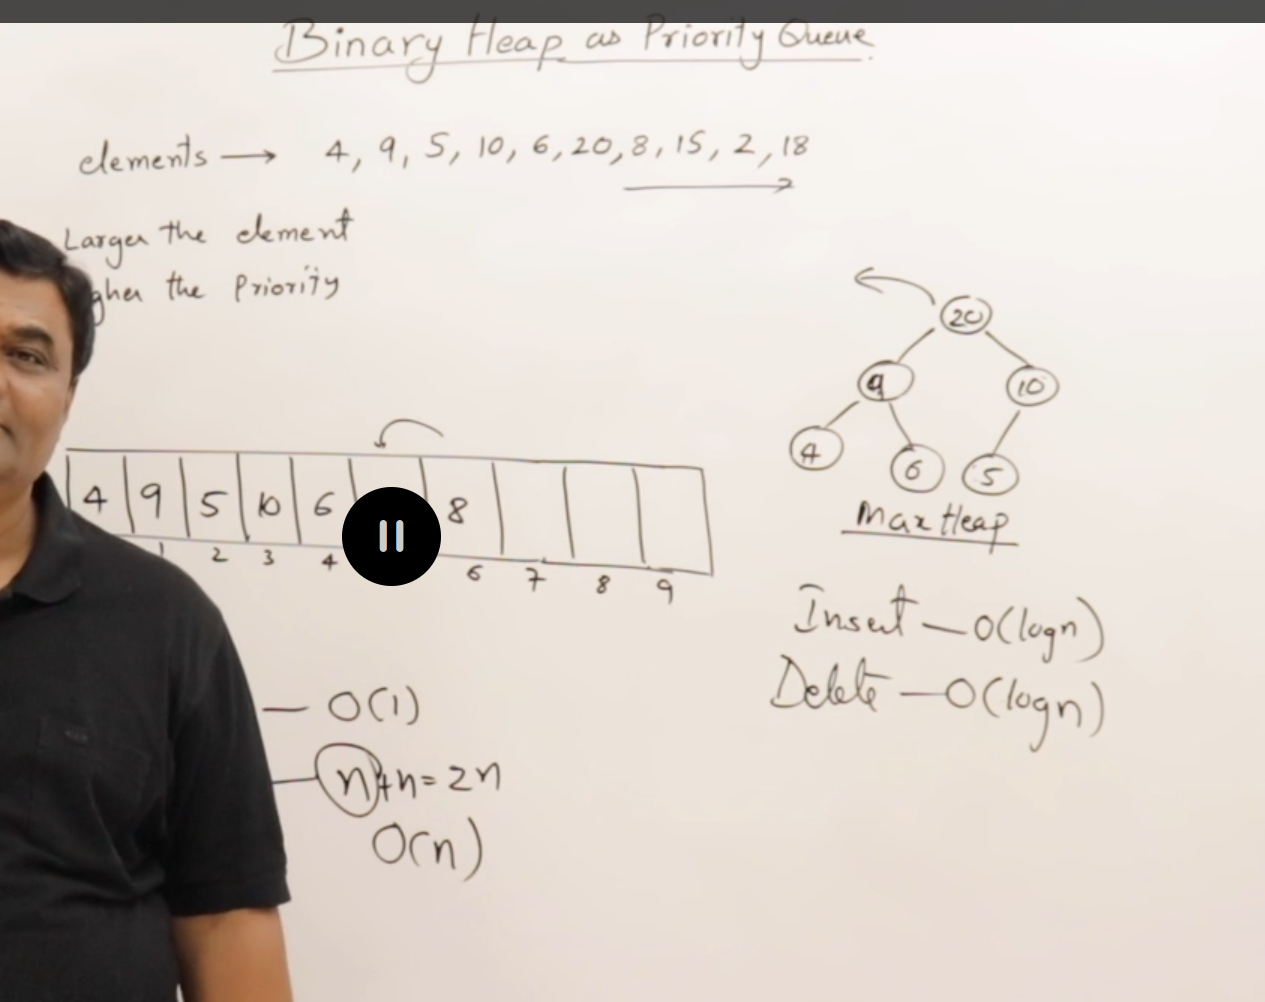 Binary Heap as Priority Queue
elements → 4, 9, 5, 10, 6, 20, 8, 15, 2, 18
Larger the element
gher the Priority
20
9 10
4 6 5
Max Heap
4 9 5 10 6 8
1 2 3 4 6 7 8 9
Insert — O(logn)
Delete — O(logn)
— O(1)
n+n=2n
O(n)